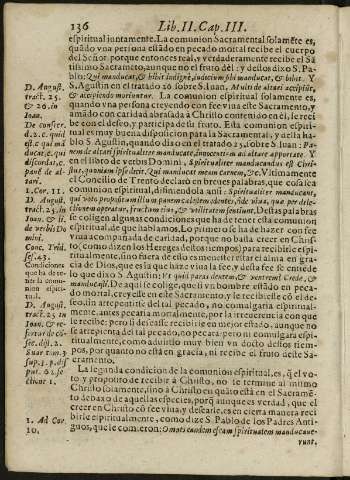 136
Lib. II. Cap. III.
espiritual juntamente. La comunion Sacramental solamẽte es,
quãdo vna persona estãdo en pecado mortal recibe el cuerpo
del Señor, porque entonces real, y verdaderamente recibe el Sã
tissimo Sacramẽto, aunque no el fruto dèl: y destos dixo S. Pa-
blo: Qui manducat, & bibit indignè, iudicium sibi manducat, & bibit. Y
S. Agustin en el tratado 26. sobre S. Iuan, Multi de altari accipiũt,
& accipiendo moriuntur. La comunion espiritual solamente es,
quando vna persona creyendo con fee viua este Sacramento, y
amãdo con caridad abrasada à Christo contenido en èl, le reci
be con el deseo, y participa de su fruto. Esta comunion espiri-
tual es muy buena disposicion para la Sacramental, y della ha-
blò S. Agustin, quando dixo en el tratado 25. sobre S. Iuan: Pa-
nem de altari spiritualiter manducate, innocentem ad altare apportate. Y
en el libro de verbis Domini, Spiritualiter manducandus est Chri-
stus, quoniam ipse dicit, Qui manducat meam carnem, &c. Vltimamente
el Concilio de Trento declarò en breues palabras, que cosa sea
comunion espiritual, difiniendola anti: Spiritualiter manducant,
qui voto propositum illum panem cælestem edentes, fide viua, quæ per dile-
ctionem operatur, fructum eius, & vtilitatem sentiunt. Destas palabras
se coligen algunas condiciones que ha de tener esta comunion
espiritual, de que hablamos. Lo primero se ha de hazer con fee
viua acompañada de caridad, porque no basta creer en Chris-
to (como dizen los Hereges destos tiempos) para recibirle espi-
ritualmente, sino fuera de esso es menester estar el alma en gra
cia de Dios, que es la que haze viua la fee, y desta fee se entiẽde
lo que dixo S. Agustin: Vt quid paras dentem, & ventrem? Crede, &
manducasti. De aqui se colige, que si vn hombre estãdo en peca-
do mortal, creyesse en este Sacramento, y le recibiesse cõ el de-
seo sin arrepentirse del tal pecado, no comulgaria espiritual-
mente, antes pecaria mortalmente, por la irreuerencia con que
le recibe: pero si desease recibirse en mejor estado, aunque no
se arrepienta del tal pecado, no pecara: pero ni comulgarà espi-
ritualmente, como aduirtio muy bien vn docto destos tiem-
pos, por quanto no està en gracia, ni recibe el fruto deste Sa-
cramento.
La segunda condicion de la comunion espiritual, es, q̃ el vo-
to y proposito de recibir à Christo, no se termine al mismo
Christo solamente, sino à Christo en quãto està en el Sacramẽ-
to debaxo de aquellas especies, porq̃ aunque es verdad, que el
creer en Christo cõ fee viua, y desearle, es en cierta manera reci
birle espiritualmente, como dize S. Pablo de los Padres Anti-
guos, que le comieron: Omnes eandem escam spiritualem manducaue-
runt,
D. August.
tract. 25.
& 26. in
Ioan.
De consecr.
d. 2. c. quid
est. c. qui mã
ducat, c. qui
discordat, c.
panẽ de al-
tari.
1. Cor. 11.
D. August.
tract. 25. in
Ioan. & li.
de verbis Do
mini.
Conc. Trid.
ses. 13.
Condiciones
que ha de te-
ner la comu-
nion espiri-
tual.
D. August.
tract. 25 in
Ioan. & re-
fertur de cõ-
sec. dist. 2.
Suar. tom. 3
sup. 3. p. dis
put. 62. se-
ctione 1.
1. Ad Cor.
10.